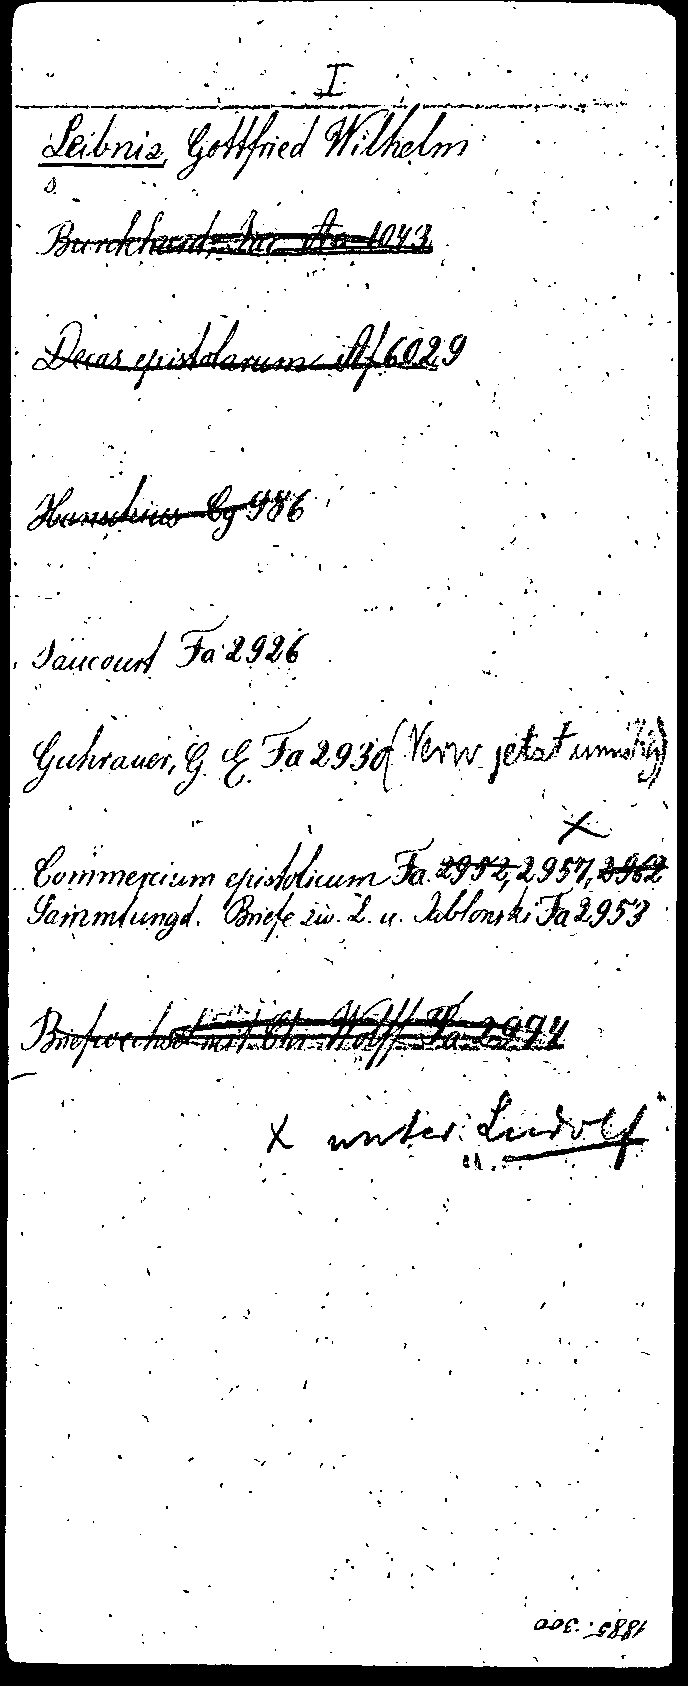 I
Leibniz, Gottfried Wilhelm
s.
Burckhard, Aa 1043
Decas epistolarum Af 6029
Hanschius Cg 986
Jaucourt Fa 2926
Guhrauer, G. E. Fa 2930 (Verw. jetzt unnötig)
X
Commercium epistolicum Fa 2952, 2957, 2962
Sammlung d. Briefe zw. L. u. Jablonski Fa 2953
Briefwechsel mit Chr. Wolff Fa 2994
X unter Ludolf
1885. 300